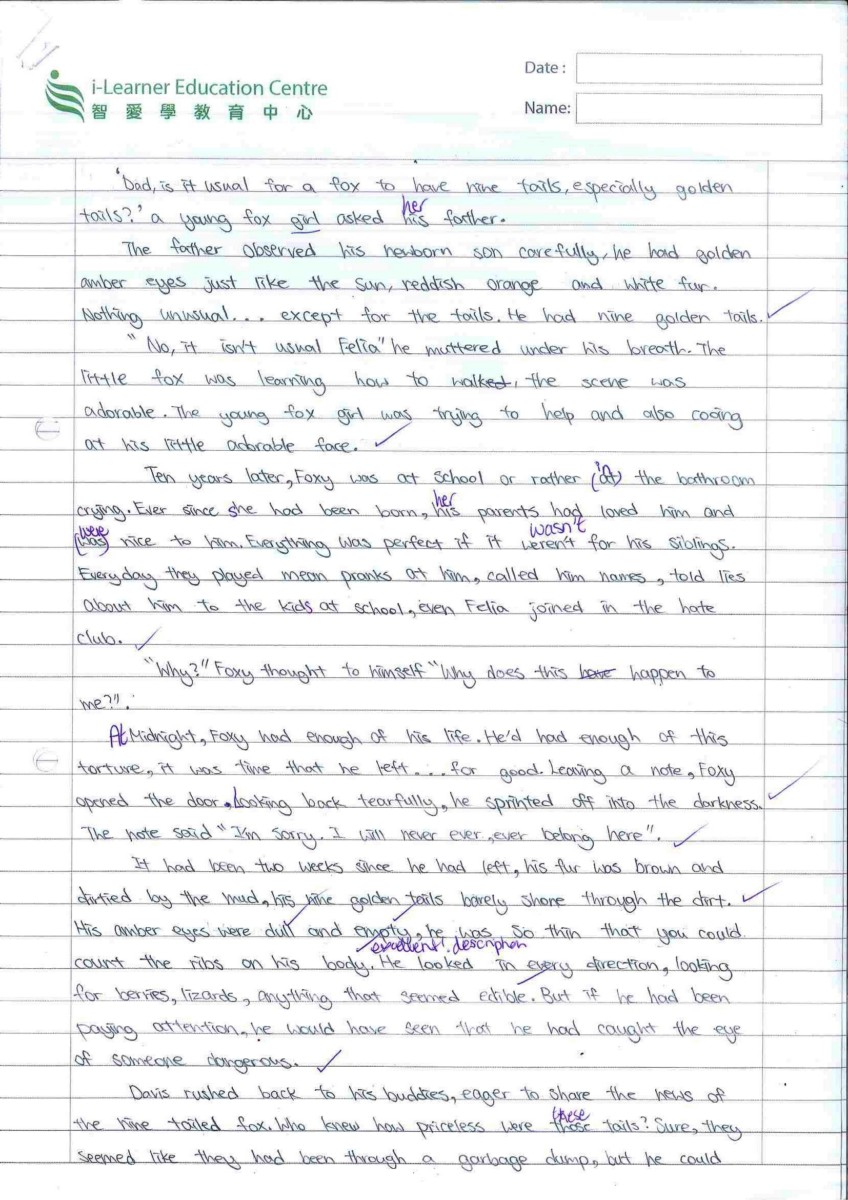 i-Learner Education Centre
智愛學教育中心
Date :
Name:
'Dad, is it usual for a fox to have nine tails, especially golden
her
tails?' a young fox girl asked his farther.
The father observed his newborn son carefully, he had golden
amber eyes just like the sun, reddish orange and white fur.
Nothing unusual... except for the tails. He had nine golden tails.
"No, it isn't usual Felia" he muttered under his breath. The
little fox was learning how to walked, the scene was
adorable. The young fox girl was trying to help and also cooing
at his little adorable face.
in
Ten years later, Foxy was at school or rather (at) the bathroom
her
crying. Ever since she had been born, his parents had loved him and
were wasn't
(was) nice to him. Everything was perfect if it weren't for his siblings.
Everyday they played mean pranks at him, called him names, told lies
about him to the kids at school, even Felia joined in the hate
club.
"Why?" Foxy thought to himself "Why does this have happen to
me?".
At Midnight, Foxy had enough of his life. He'd had enough of this
torture, it was time that he left... for good. Leaving a note, Foxy
opened the door. Looking back tearfully, he sprinted off into the darkness.
The note said "I'm sorry. I will never ever, ever belong here".
It had been two weeks since he had left, his fur was brown and
dirtied by the mud, his nine golden tails barely shone through the dirt.
His amber eyes were dull and empty, he was so thin that you could
excellent description
count the ribs on his body. He looked in every direction, looking
for berries, lizards, anything that seemed edible. But if he had been
paying attention, he would have seen that he had caught the eye
of someone dangerous.
Davis rushed back to his buddies, eager to share the news of
these
the nine tailed fox. Who knew how priceless were those tails? Sure, they
seemed like they had been through a garbage dump, but he could